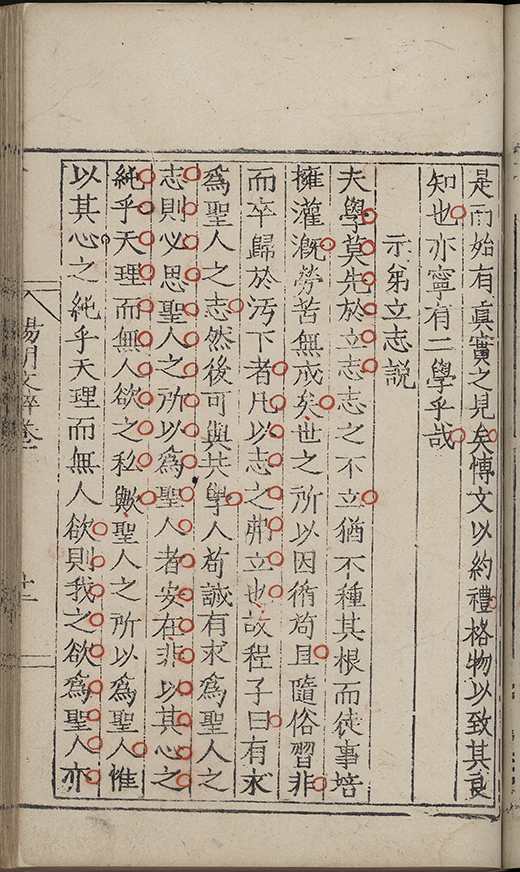 是而始有眞實之見矣愽文以約禮格物以致其良
知也亦寧有二學乎哉
示弟立志説
夫學莫先於立志志之不立猶不種其根而徒事培
擁灌漑勞苦無成矣世之所以因循苟且隨俗習非
而卒歸於汚下者凡以志之弗立也故程子曰有求
爲聖人之志然後可與共學人苟誠有求爲聖人之
志則必思聖人之所以爲聖人者安在非以其心之
純乎天理而無人欲之私歟聖人之所以爲聖人惟
以其心之純乎天理而無人欲則我之欲爲聖人亦
陽明文粹卷二